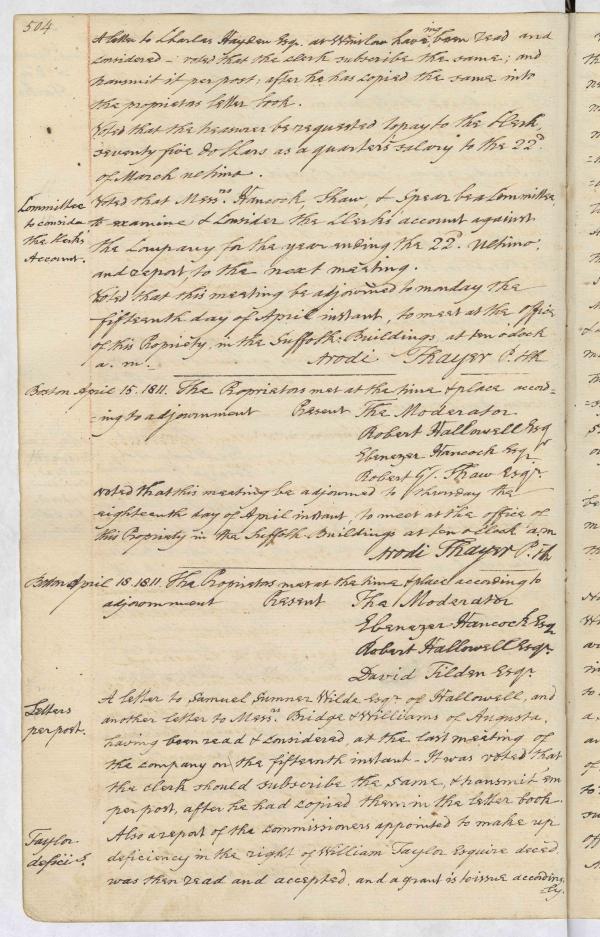 504
A letter to Charles Hayden Esqr. at Winslow having been read and
considered - voted that the clerk subscribe the same; and
transmit it per post; after he has copied the same into
the proprietors letter book.
Voted that the treasurer be requested to pay to the Clerk,
seventy five dollars as a quarters salary to the 22d.
of March ultimo.
Committee
to consider
the Clerks
Account.
Voted that Messrs. Hancock, Shaw, & Spear be a Committee,
to examine & Consider the Clerks account against
the Company for the year ending the 22d. Ultimo,
and report to the next meeting.
Voted that this meeting be adjourned to monday the
fifteenth day of April instant, to meet at the office
of this Propriety, in the Suffolk Buildings, at ten o clock
a. m. Arodi Thayer P. Clk
Boston April 15. 1811. The Proprietors met at the time & place accord-
-ing to adjournment Present The Moderator
Robert Hallowell Esqr
Ebenezer Hancock Esqr
Robert G. Shaw Esqr.
Voted that this meeting be adjourned to thursday the
eighteenth day of April instant, to meet at the office of
this Propriety in the Suffolk Buildings at ten o clock a.m
Arodi Thayer P. Clk
Boston April 18. 1811. The Proprietors met at the time & place according to
adjournment Present The Moderator
Ebenezer Hancock Esqr
Robert Hallowell Esqr.
David Tilden Esqr.
Letters
per post.
A letter to Samuel Sumner Wilde Esqr of Hallowell, and
another letter to Messrs. Bridge & Williams of Augusta,
having been read & considered, at the last meeting of
the company on the fifteenth instant - It was voted that
the clerk should subscribe the same, & transmit em
per post, after he had copied them in the letter book.
Taylor
deficit.
Also a report of the commissioners appointed to make up
deficiency in the right of William Taylor Esquire deced.
was then read and accepted, and a grant is to issue according
ly.